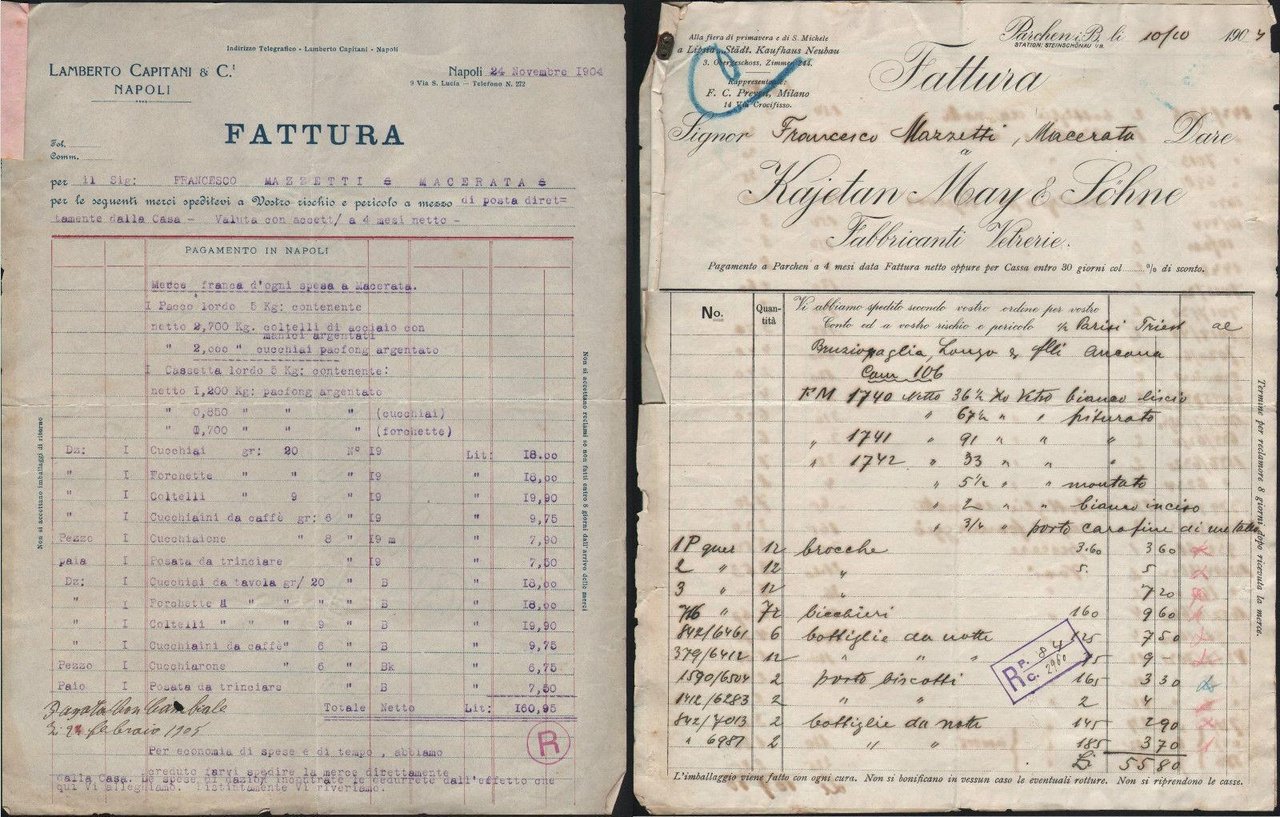 Indirizzo Telegrafico - Lamberto Capitani - Napoli
LAMBERTO CAPITANI & C.i
NAPOLI
Napoli 24 Novembre 1904
9 Via S. Lucia — Telefono N. 272
FATTURA
Fol.
Comm.
per il Sig: FRANCESCO MAZZETTI & MACERATA &
per le seguenti merci speditevi a Vostro rischio e pericolo a mezzo di posta diret=
tamente dalla Casa - Valuta con accett/ a 4 mesi netto -
PAGAMENTO IN NAPOLI
Merce franca d'ogni spesa a Macerata.
I Pacco lordo 5 Kg: contenente
netto 2,700 Kg. coltelli di acciaio con
manici argentati
" 2,000 " cucchiai pacfong argentato
I Cassetta lordo 5 Kg: contenente:
netto I,200 Kg: pacfong argentato
" 0,850 " " " (cucchiai)
" 0,700 " " " (forchette)
Dz: I Cucchiai gr: 20 Nº I9 Lit: I8.00
" I Forchette " " I9 " I8,00
" I Coltelli " 9 " I9 " I9,90
" I Cucchiaini da caffè gr: 6 " I9 " 9,75
Pezzo I Cucchiaione " 8 " I9 m " 7,90
paia I Posata da trinciare " I9 " 7,50
Dz: I Cucchiai da tavola gr/ 20 " B " I8,00
" I Forchette " " " B " I8,00
" I Coltelli " " 9 " B " I9,90
" I Cucchiaini da caffè" 6 " B " 9,75
Pezzo I Cucchiarone " 6 " Bk " 6,75
Paio I Posata da trinciare " B " 7,50
Totale Netto Lit: I60,95
Cambiale
febraio 1905
R
Per economia di spese e di tempo , abbiamo
creduto farvi spedire la merce direttamente
dalla Casa. Le spese di dazio incontrate le dedurrete dall'effetto che
qui Vi alleghiamo. Distintamente Vi riveriamo.
Non si accettano imballaggi di ritorno
Non si accettano reclami se non fatti entro 8 giorni dall'arrivo delle merci
Alla fiera di primavera e di S. Michele
a Lipsia, Städt. Kaufhaus Neubau
3. Obergeschoss, Zimmer 244.
Rappresentante:
F. C. Milano
14 Via Crocifisso.
Parchen i/B. li 10/10 1904
STATION: STEINSCHÖNAU i/B.
Fattura
Signor Francesco Mazzetti, Macerata Dare
a
Kajetan May & Söhne
Fabbricanti Vetrerie.
Pagamento a Parchen a 4 mesi data Fattura netto oppure per Cassa entro 30 giorni col % di sconto.
No.
Quantità
Vi abbiamo spedito secondo vostro ordine per vostro
Conto ed a vostro rischio e pericolo Parisi Triest al
Longo & flli Ancona
106
FM 1740 Netto 36½ Ko Vetro bianco liscio
" 67½ " " piturato
" 1741 " 91 " " "
" 1742 " 33 " " "
" 5½ " " montato
" 2 " " bianco inciso
" 3/4 " " porto carafine di metallo
1 P quer 12 brocche 3.60 3 60
2 " 12 " 5. 5
3 " 12 " 7 20
716 " 72 bicchieri 160 9 60
842/6461 6 bottiglie da notte 125 7 50
379/6412 12 " " " 75 9 -
1590/6504 2 porto biscotti 165 3 30
1412/6283 2 " " 2 4
842/7013 2 bottiglie da notte 145 2 90
" 6987 2 " " 185 3 70
55 80
R P. 84
C. 2960
L'imballaggio viene fatto con ogni cura. Non si bonificano in vessun caso le eventuali rotture. Non si riprendono le casse.
Termine per reclamare 8 giorni dopo ricevuta la merce.